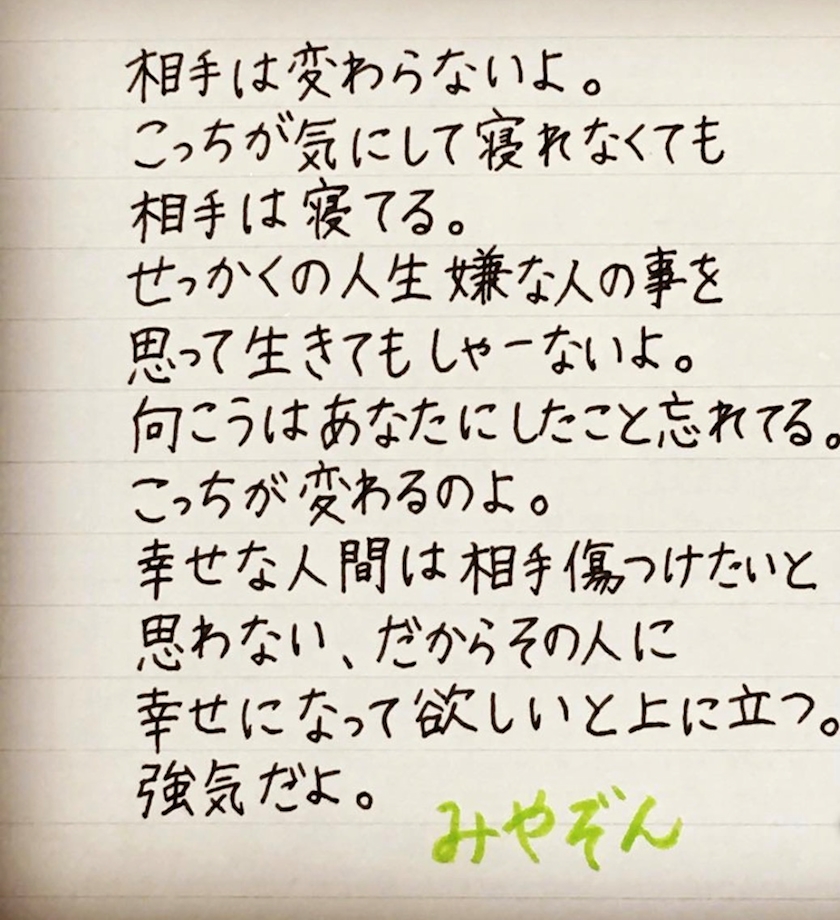 相手は変わらないよ。
こっちが気にして寝れなくても
相手は寝てる。
せっかくの人生嫌な人の事を
思って生きてもしゃーないよ。
向こうはあなたにしたこと忘れてる。
こっちが変わるのよ。
幸せな人間は相手傷つけたいと
思わない、だからその人に
幸せになって欲しいと上に立つ。
強気だよ。
みやぞん